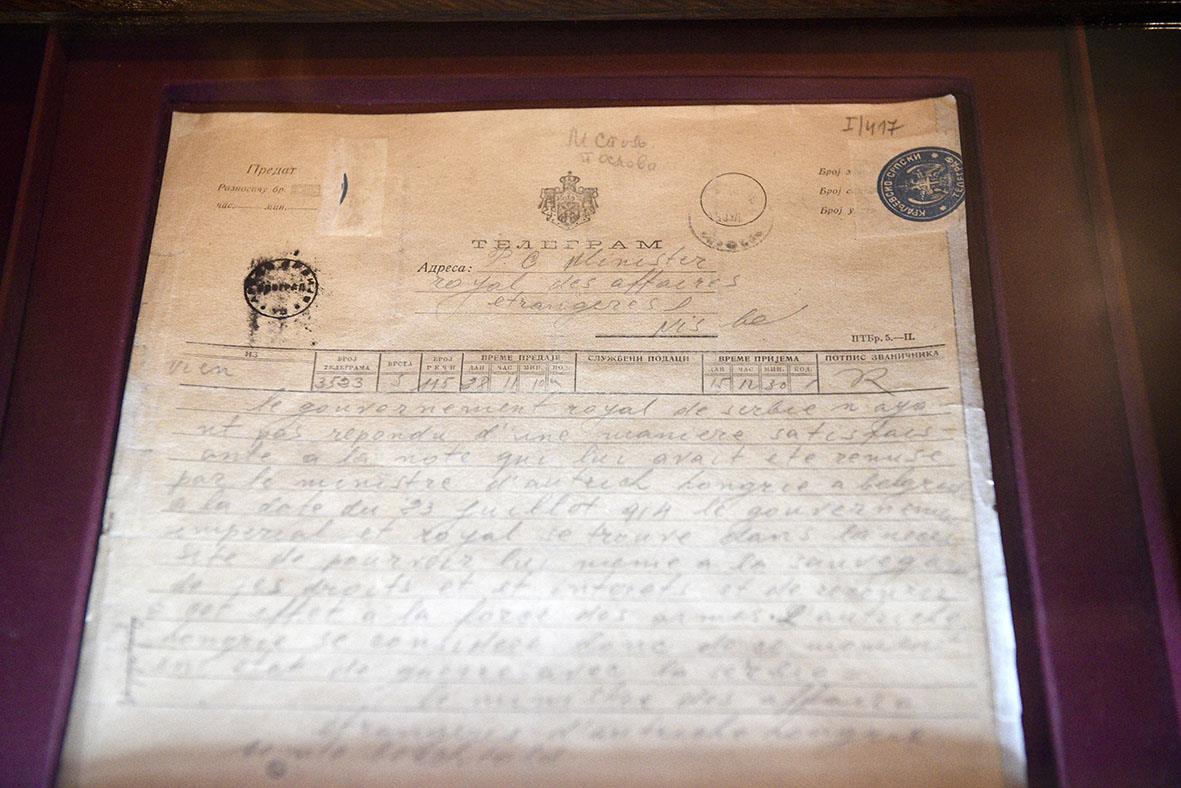 I/417
М Спољ.
послова
Предат
Разносачу бр.
час. мин.
Број
Број
Број
КРАЉЕВСКО-СРПСКИ
ТЕЛЕГРАМ
Адреса: Minister
royal des affaires
etrangeres
Nis
ПТБр. 5.—II.
ИЗ БРОЈ ТЕЛЕГРАМА ВРСТА БРОЈ РЕЧИ ВРЕМЕ ПРЕДАЈЕ СЛУЖБЕНИ ПОДАЦИ ВРЕМЕ ПРИЈЕМА ПОТПИС ЗВАНИЧНИКА
ДАН ЧАС МИН. ПОД. ДАН ЧАС МИН. ПОД.
vien 3523 5 115 28 11 10 15 12 30
Le gouvernement royal de serbie n aya
nt pas repondu d'une maniere satisfais
ante a la note qui lui avait ete remise
par le ministre d'autrich hongrie a belgra
a la date du 23 juillot 914 le gouvernem
imperial et royal se trouve dans la nece
site de pourvoir lui meme a la sauvega
de ses droits et interets et de recourir
a cet effet a la force des armes L autriche
hongrie se considere donc de ce moment
en etat de guerre avec la serbie =
le ministre des affaire
etrangeres d'autriche hongrie